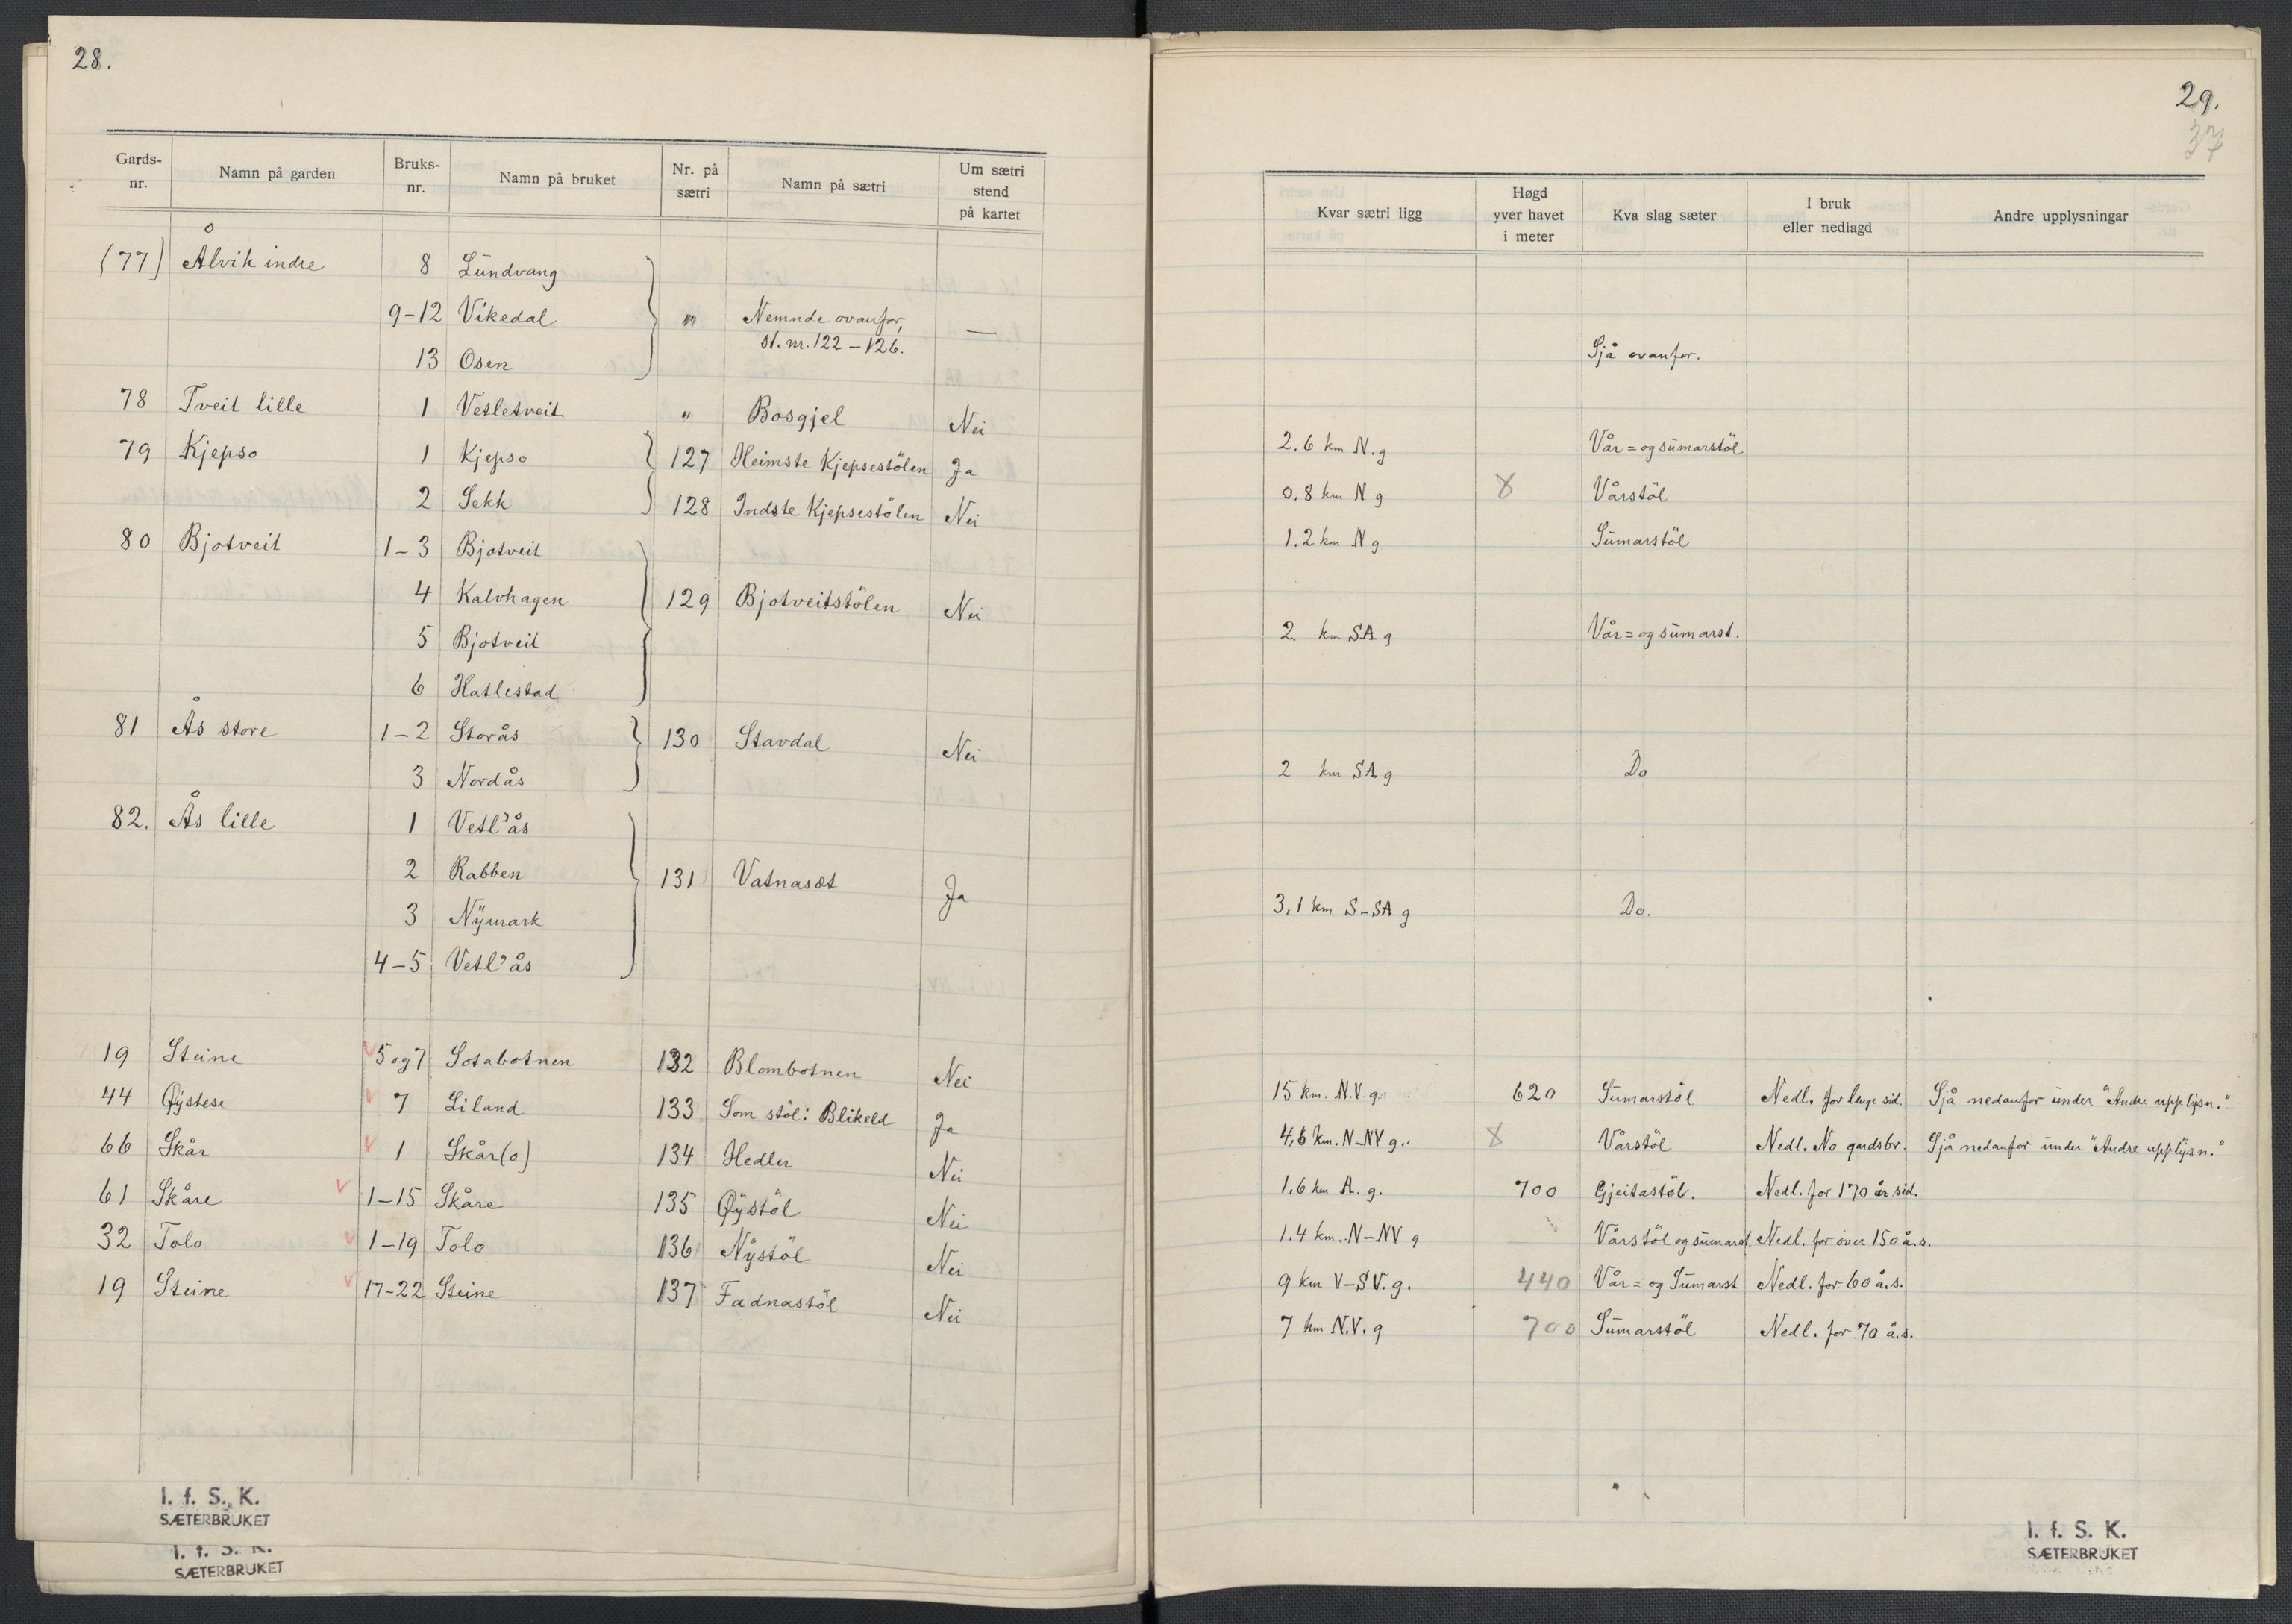 28.
Gards-nr. Namn på garden Bruks-nr. Namn på bruket Nr. på sætri Namn på sætri Um sætri stend på kartet
(77) Ålvik indre 8 Lundvang
9-12 Vikedal " Nemnde ovanfor, —
st. nr. 122-126.
13 Osen
78 Tveit lille 1 Vetletveit " Bosgjel Nei
79 Kjepso 1 Kjepso 127 Heimste Kjepsestölen Ja
2 Sekk 128 Indste Kjepsestölen Nei
80 Bjotveit 1-3 Bjotveit
4 Kalvhagen 129 Bjotveitstölen Nei
5 Bjotveit
6 Hatlestad
81 Ås store 1-2 Storås 130 Stavdal Nei
3 Nordås
82. Ås lille 1 Vetl'ås
2 Rabben 131 Vatnasæt Ja
3 Nymark
4-5 Vetl'ås
19 Steine 5 og 7 Sotabotnen 132 Blombotnen Nei
44 Øystese 7 Liland 133 Som stöl: Blikeld Ja
66 Skår 1 Skår(o) 134 Hedler Nei
61 Skåre 1-15 Skåre 135 Øystöl Nei
32 Tolo 1-19 Tolo 136 Nystöl Nei
19 Steine 17-22 Steine 137 Fadnastöl Nei
I. f. S. K.
SÆTERBRUKET
I. f. S. K.
SÆTERBRUKET
29.
37
Kvar sætri ligg Høgd yver havet i meter Kva slag sæter I bruk eller nedlagd Andre upplysningar
Sjå ovanfor.
2.6 km N. g Vår= og sumarstöl
0.8 km N g X Vårstöl
1.2 km N g Sumarstöl
2. km SA g Vår= og sumarst.
2 km SA g Do
3,1 km S-SA g Do.
15 km. N.V. g. 620 Sumarstöl Nedl. for lenge sid. Sjå nedanfor under "Andre upplysn."
4,6 km. N-NV g. X Vårstöl Nedl. No gardsbr. Sjå nedanfor under "Andre upplysn."
1.6 km A. g. 700 Gjeitastöl. Nedl. for 170 år sid.
1.4 km. N-NV g Vårstöl og sumarst. Nedl. for over 150 å.s.
9 km V-SV. g. 440 Vår= og Sumarst Nedl. for 60 å.s.
7 km N.V. g 700 Sumarstöl Nedl. for 70 å.s.
I. f. S. K.
SÆTERBRUKET